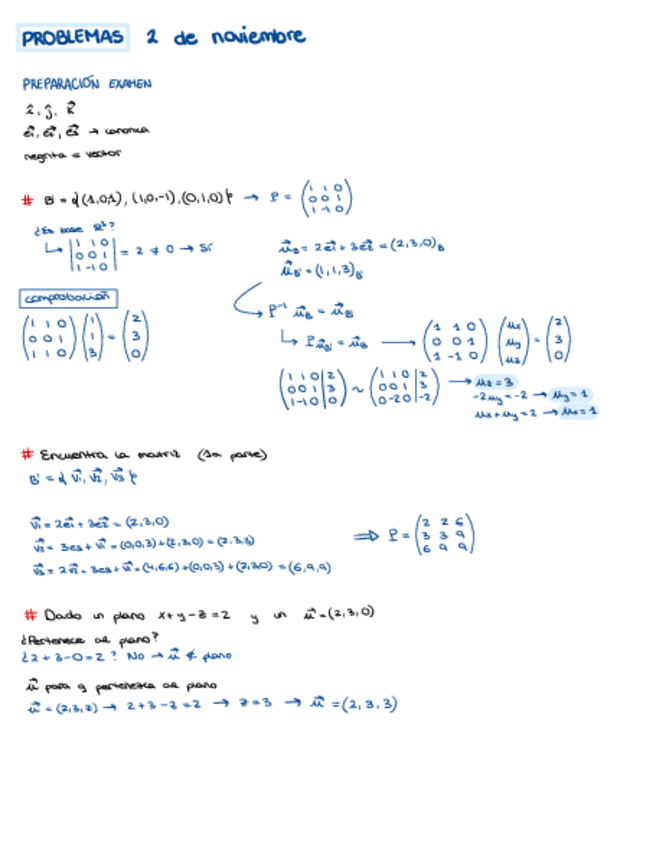 PROBLEMAS 2 de noviembre
PREPARACIÓN EXAMEN
î, ĵ, k⃗
e⃗1, e⃗2, e⃗3 → canonica
negrita = vector
# B' = {(1,0,1), (1,0,-1), (0,1,0)} → P = (1 1 0 / 0 0 1 / 1 -1 0)
¿Es base R³?
↳ |1 1 0 / 0 0 1 / 1 -1 0| = 2 ≠ 0 → Sí
u⃗B = 2e⃗1 + 3e⃗2 = (2,3,0)B
u⃗B' = (1,1,3)B'
comprobación
(1 1 0 / 0 0 1 / 1 1 0) (1 / 1 / 3) = (2 / 3 / 0)
P⁻¹ u⃗B = u⃗B'
↳ P u⃗B' = u⃗B → (1 1 0 / 0 0 1 / 1 -1 0) (ux / uy / uz) = (2 / 3 / 0)
(1 1 0 | 2 / 0 0 1 | 3 / 1 -1 0 | 0) ~ (1 1 0 | 2 / 0 0 1 | 3 / 0 -2 0 | -2) → uz = 3
-2uy = -2 → uy = 1
ux + uy = 2 → ux = 1
# Encuentra la matriz (1a parte)
B' = {v⃗1, v⃗2, v⃗3}
v⃗1 = 2e⃗1 + 3e⃗2 = (2,3,0)
v⃗2 = 3e3 + v⃗1 = (0,0,3) + (2,3,0) = (2,3,3)
⇒ P = (2 2 6 / 3 3 9 / 6 9 9)
= (4,6,6) + (0,0,3) + (2,3,0) = (6,9,9)
# Dado un plano x + y - z = 2 y un u⃗ = (2,3,0)
¿Pertenece al plano?
¿2 + 3 - 0 = 2? No → u⃗ ∉ plano
u⃗ para q pertenezca al plano
u⃗ = (2,3,z) → 2 + 3 - z = 2 → z = 3 → u⃗ = (2,3,3)